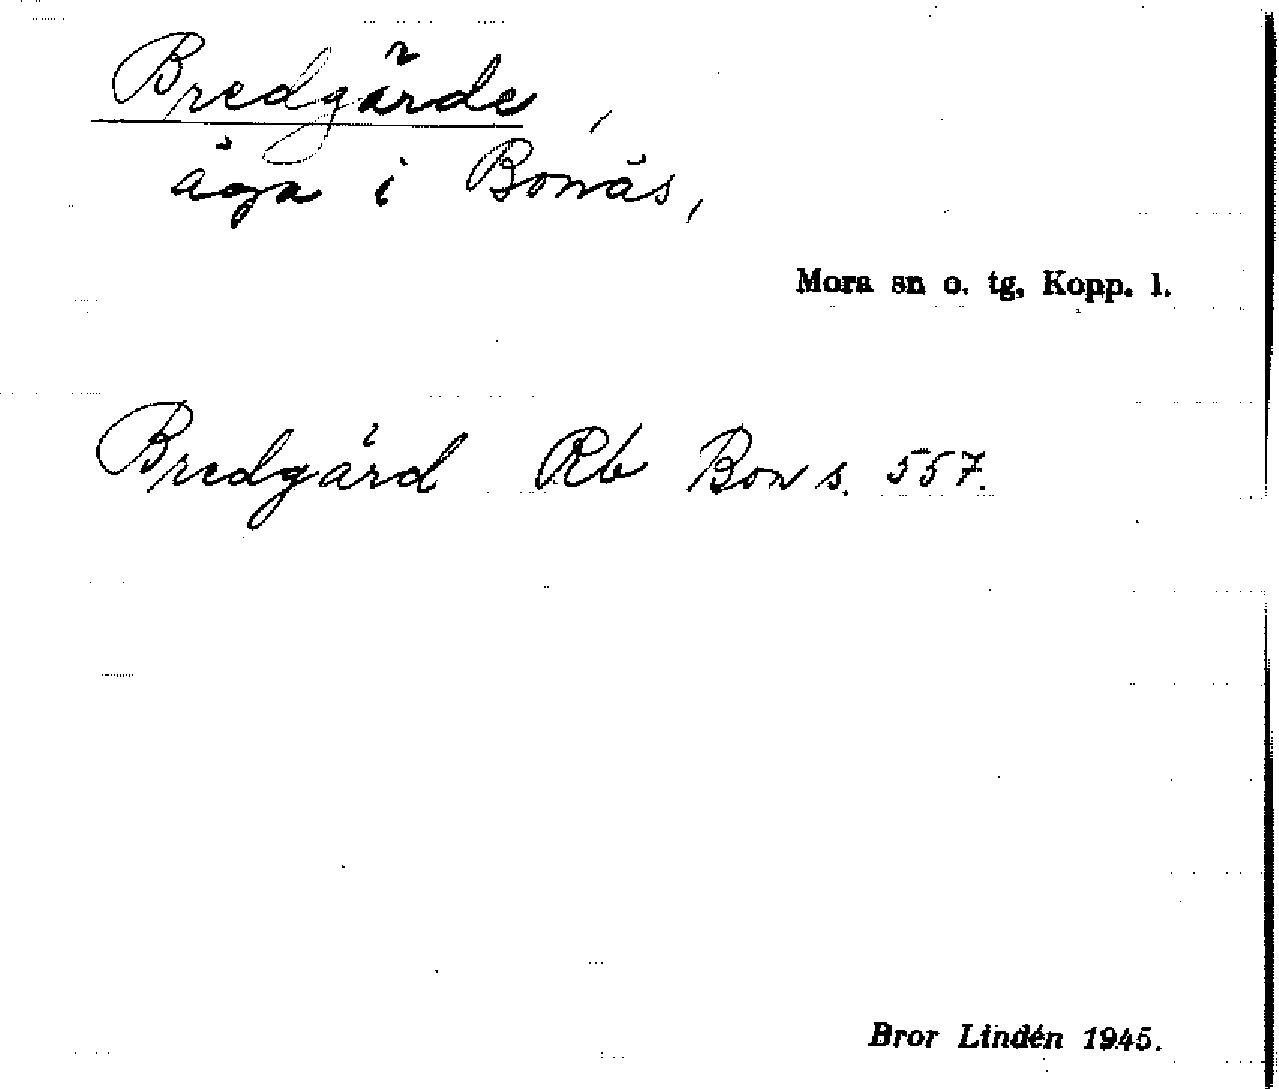 Bredgärde,
äga i Bonäs,
Mora sn o. tg, Kopp. l.
Bredgärd Rb Bon s. 557.
Bror Lindén 1945.